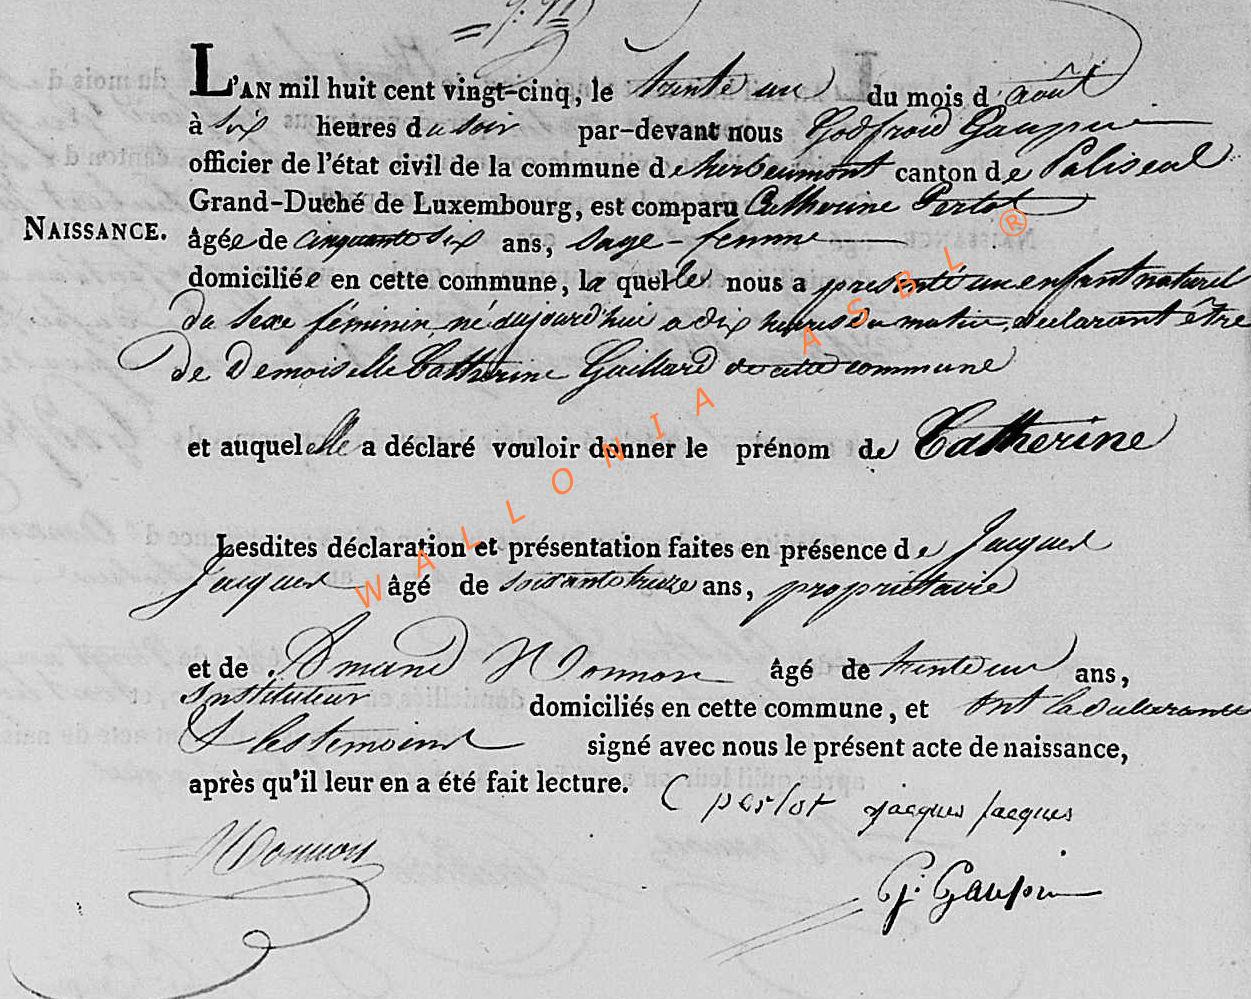 L'AN mil huit cent vingt-cinq, le trente un du mois d'août
à six heures du soir par-devant nous Godfroid Gaupin
officier de l'état civil de la commune de herbeumont canton de Paliseul
Grand-Duché de Luxembourg, est comparu Catherine Perlot
NAISSANCE. âgée de cinquante six ans, sage-femme
domiciliée en cette commune, la quelle nous a présenté un enfant naturel
du sexe féminin, né aujourd'hui a dix heures du matin, declarant être
de Demoiselle Catherine Gaillard de cette commune
et auquel elle a déclaré vouloir donner le prénom de Catherine
Lesdites déclaration et présentation faites en présence de Jacques
Jacques âgé de ans, propriétaire
et de Amand âgé de trente un ans,
Instituteur domiciliés en cette commune, et ont la declarante
& les temoins signé avec nous le présent acte de naissance,
après qu'il leur en a été fait lecture. C perlot jacques jacques
G: Gaupin
WALLONIA ASBL ®